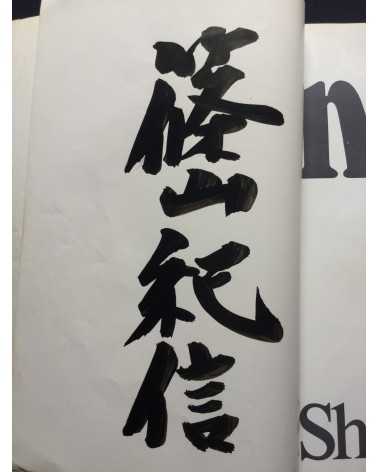 篠山紀信
n
Sh